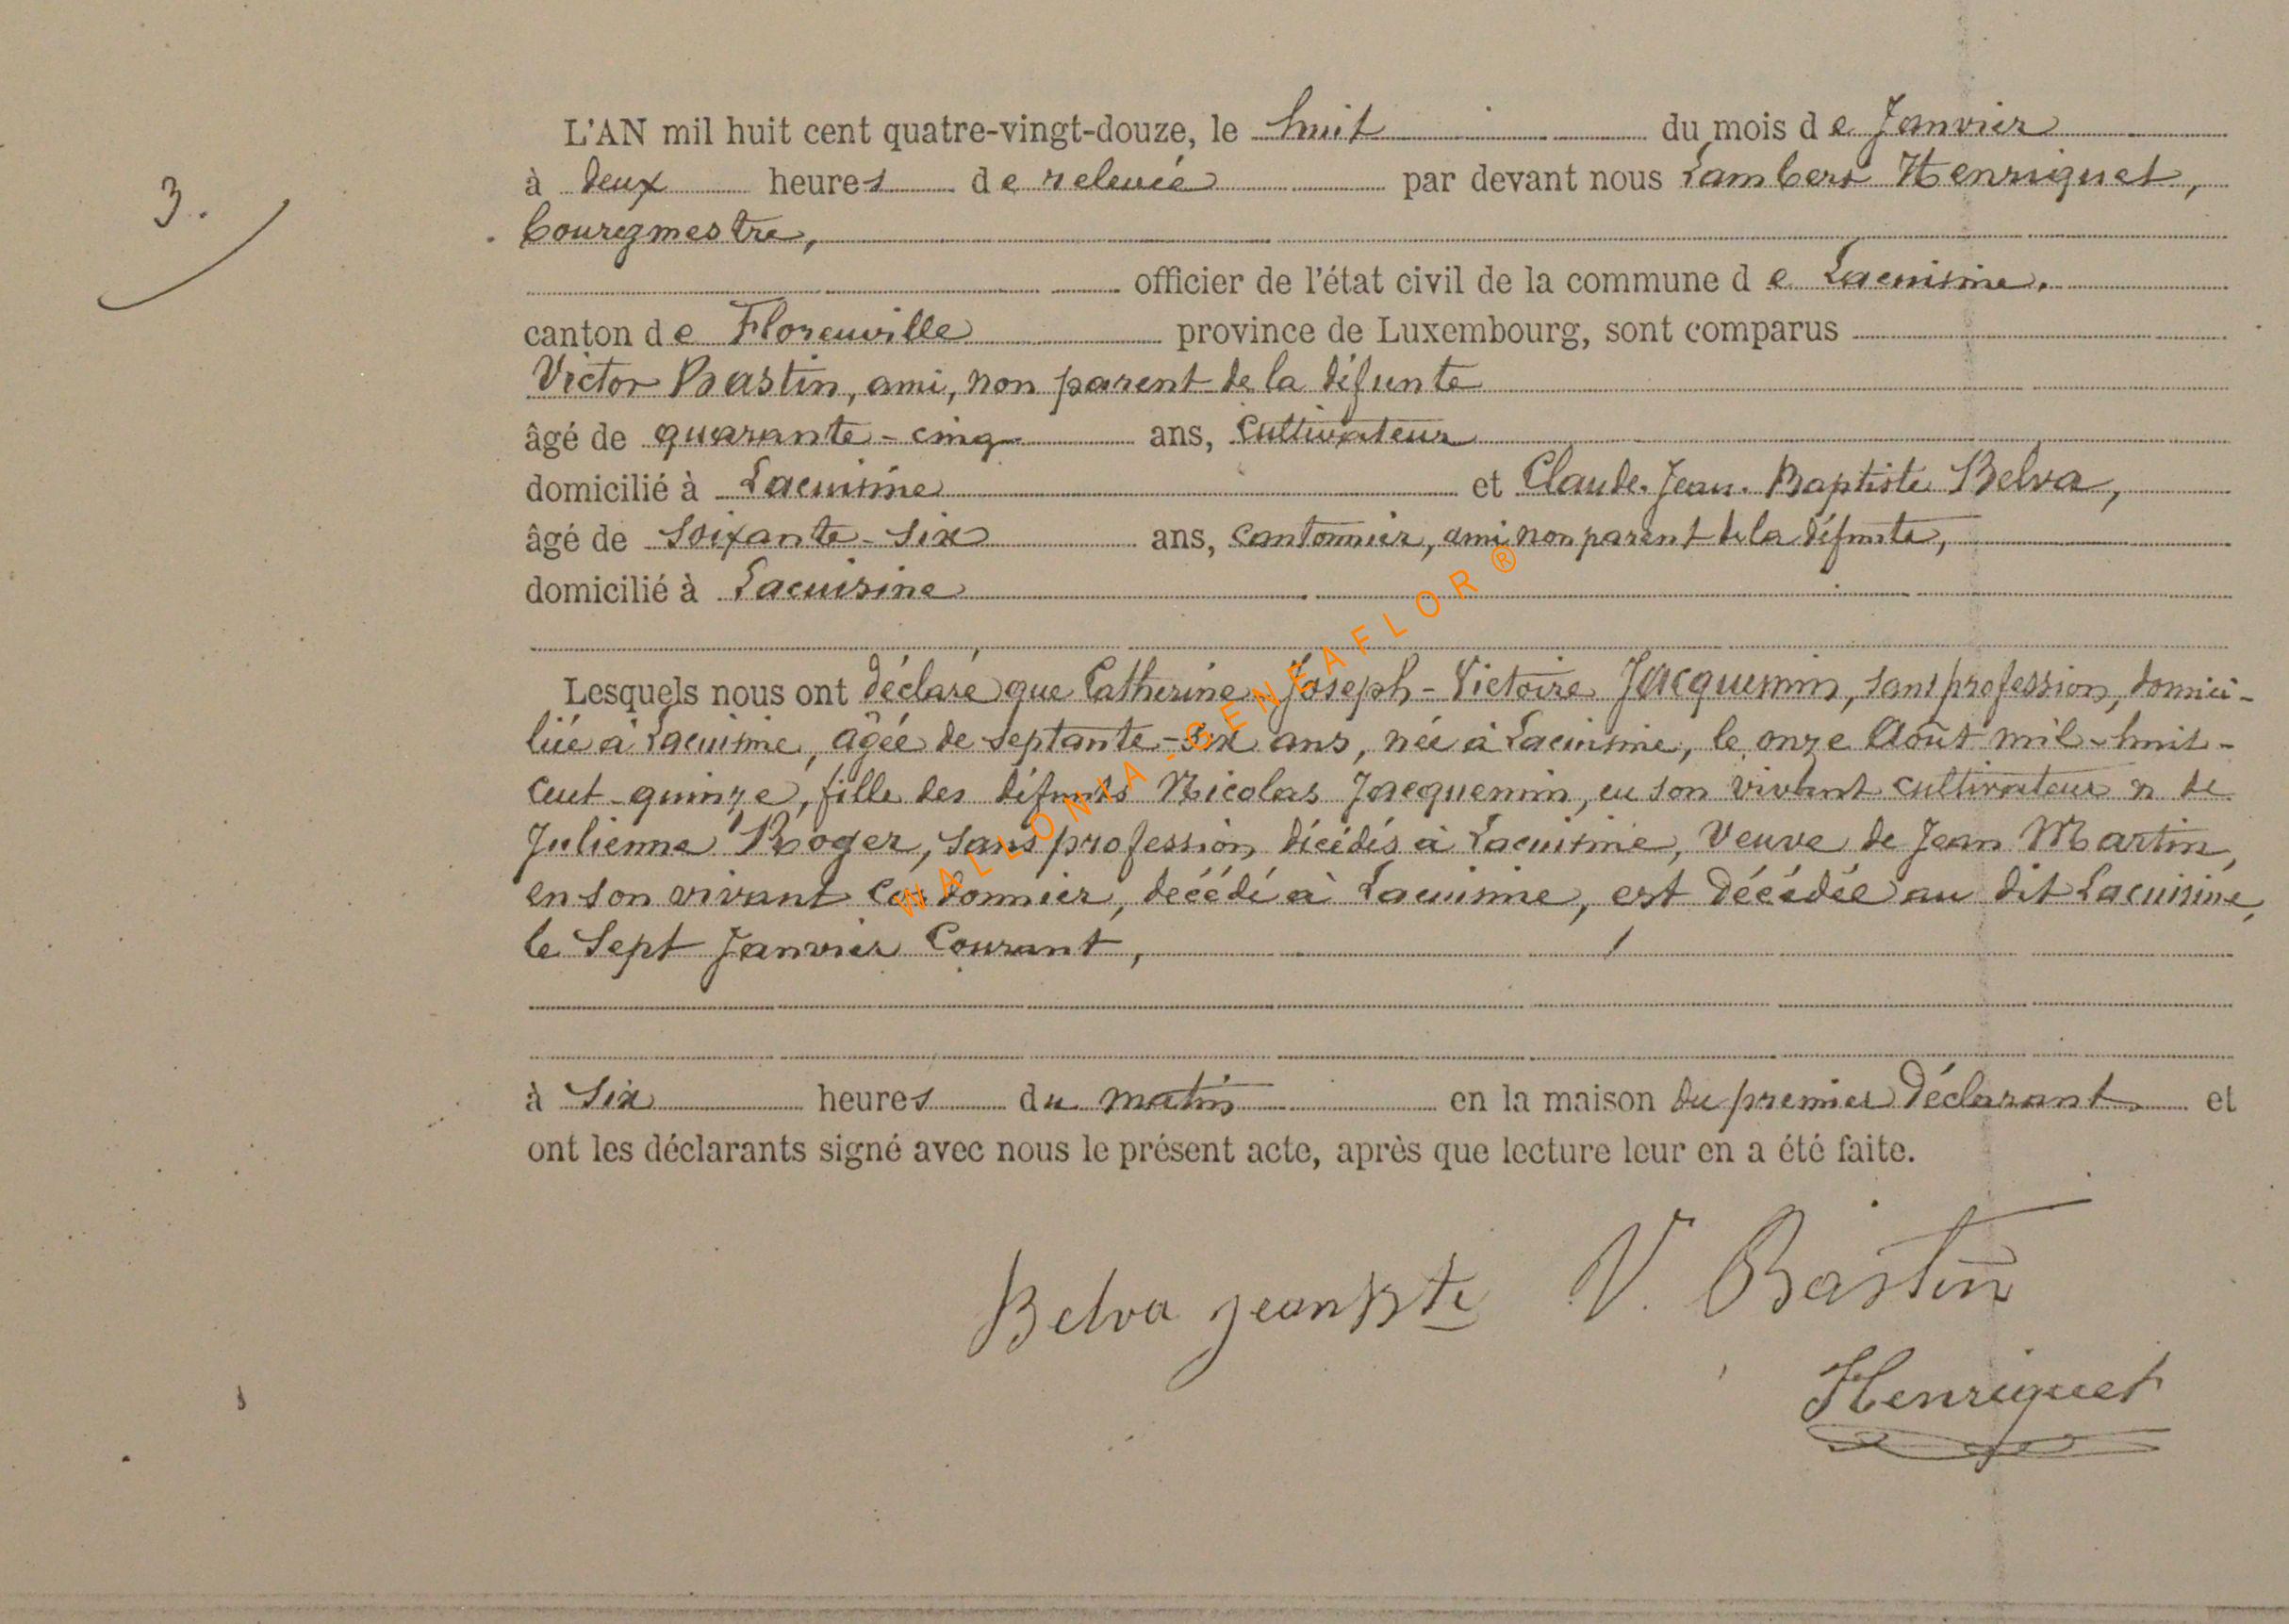 3.
L'AN mil huit cent quatre-vingt-douze, le huit du mois de Janvier
à deux heures de relevée par devant nous Lambert Henriquet,
bourgmestre,
officier de l'état civil de la commune de Lacuisine.
canton de Florenville province de Luxembourg, sont comparus
Victor Bastin, ami, non parent de la défunte
âgé de quarante-cinq ans, cultivateur
domicilié à Lacuisine et Claude-Jean-Baptiste Belva,
âgé de soixante-six ans, cantonnier, ami non parent de la défunte,
domicilié à Lacuisine
Lesquels nous ont déclaré que Catherine Joseph-Victoire Jacquemin, sans profession, domici-
liée à Lacuisine, âgée de septante-six ans, née à Lacuisine, le onze Août mil-huit-
cent-quinze, fille des défunts Nicolas Jacquemin, en son vivant cultivateur & de
Julienne Roger, sans profession, décédés à Lacuisine, Veuve de Jean Martin,
en son vivant cordonnier, décédé à Lacuisine, est décédée au dit Lacuisine,
le Sept Janvier Courant,
à six heures du matin en la maison du premier déclarant et
ont les déclarants signé avec nous le présent acte, après que lecture leur en a été faite.
Belva jean Bte V. Bastin
Henriquet
WALLONIA-GENEAFLOR®